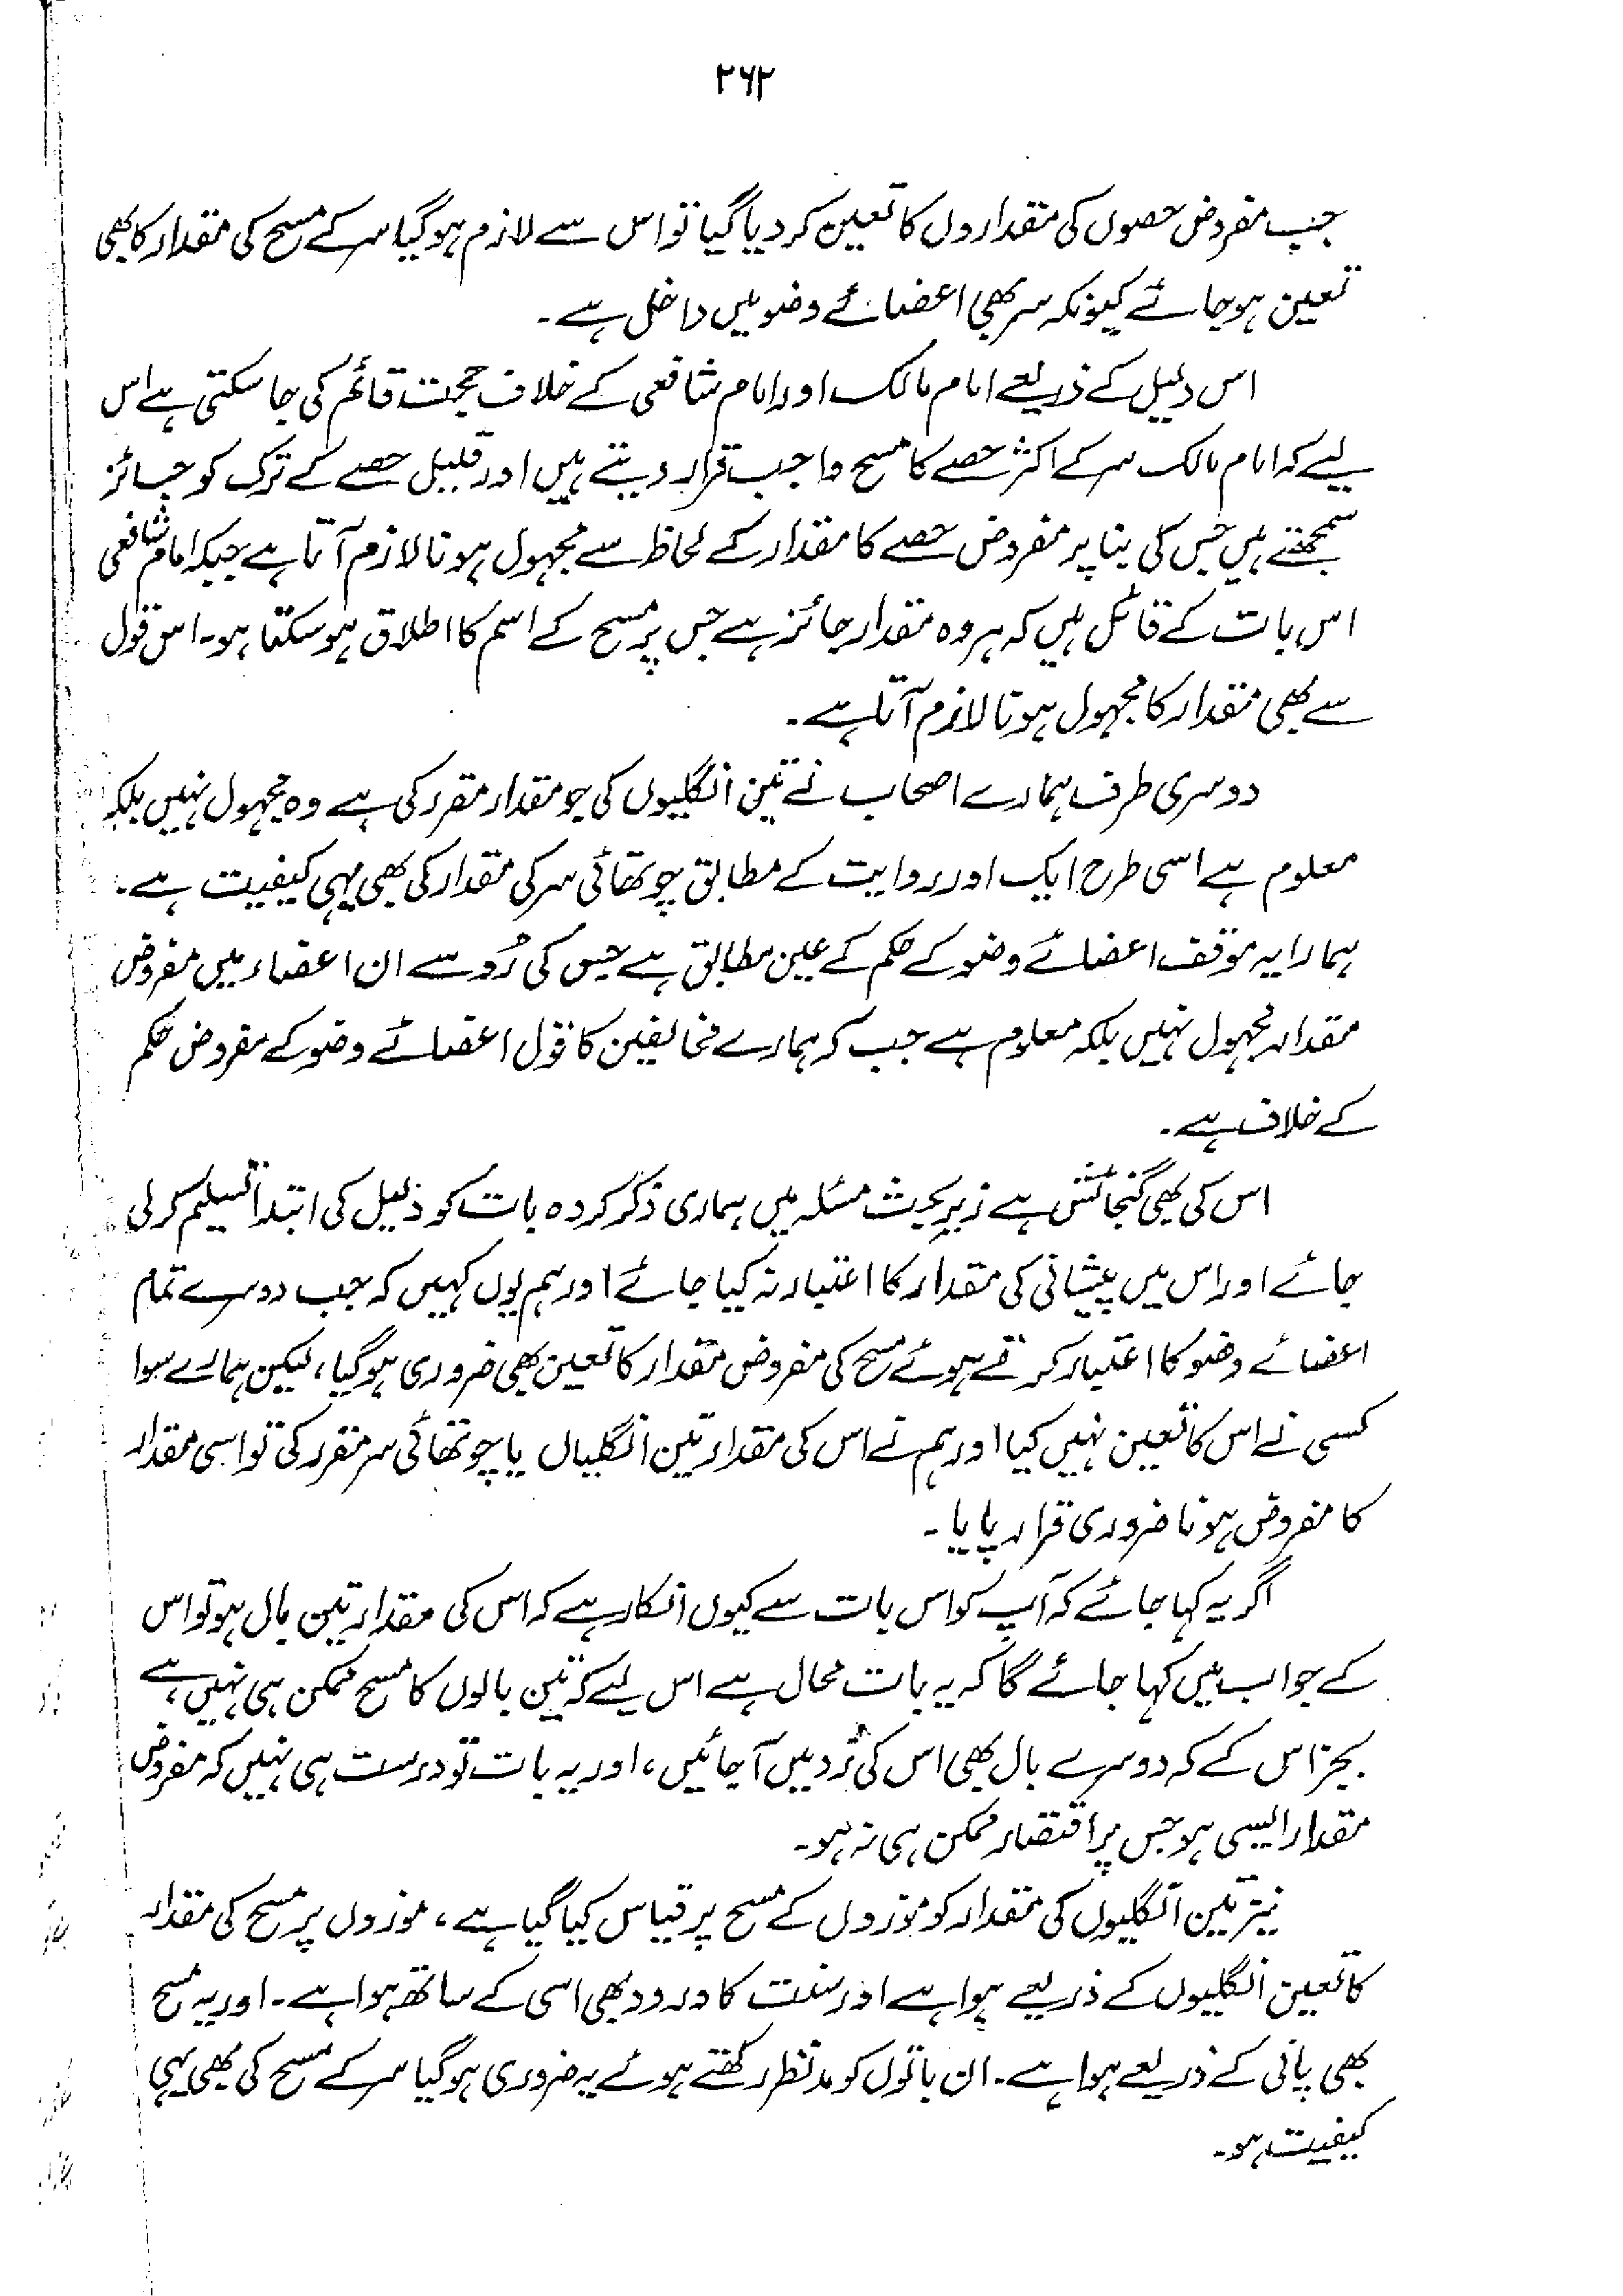 ۲۶۲
جب مفروض حصوں کی مقداروں کا تعین کر دیا گیا تو اس سے لازم ہوگیا سر کے مسح کی مقدار کا بھی
تعین ہو جائے کیونکہ سر بھی اعضائے وضو میں داخل ہے۔
اس دلیل کے ذریعے امام مالک اور امام شافعی کے خلاف حجت قائم کی جا سکتی ہے اس
لیے کہ امام مالک سر کے اکثر حصے کا مسح واجب قرار دیتے ہیں اور قلیل حصے کے ترک کو جائز
سمجھتے ہیں جس کی بنا پر مفروض حصے کا مقدار کے لحاظ سے مجہول ہونا لازم آتا ہے جبکہ امام شافعی
اس بات کے قائل ہیں کہ ہر وہ مقدار جائز ہے جس پر مسح کے اسم کا اطلاق ہو سکتا ہو۔ اس قول
سے بھی مقدار کا مجہول ہونا لازم آتا ہے۔
دوسری طرف ہمارے اصحاب نے تین انگلیوں کی جو مقدار مقرر کی ہے وہ مجہول نہیں بلکہ
معلوم ہے اسی طرح ایک اور روایت کے مطابق چوتھائی سر کی مقدار کی بھی یہی کیفیت ہے۔
ہمارا یہ موقف اعضائے وضو کے حکم کے عین مطابق ہے جس کی رُو سے ان اعضاء میں مفروض
مقدار مجہول نہیں بلکہ معلوم ہے جب کہ ہمارے مخالفین کا قول اعضائے وضو کے مفروض حکم
کے خلاف ہے۔
اس کی بھی گنجائش ہے زیر بحث مسئلہ میں ہماری ذکر کردہ بات کو دلیل کی ابتدا تسلیم کر لی
جائے اور اس میں پیشانی کی مقدار کا اعتبار نہ کیا جائے اور ہم یوں کہیں کہ جب دوسرے تمام
اعضائے وضو کا اعتبار کرتے ہوئے مسح کی مفروض مقدار کا تعین بھی ضروری ہوگیا، لیکن ہمارے سوا
کسی نے اس کا تعین نہیں کیا اور ہم نے اس کی مقدار تین انگلیاں یا چوتھائی سر مقرر کی تو اسی مقدار
کا مفروض ہونا ضروری قرار پایا۔
اگر یہ کہا جائے کہ آپ کو اس بات سے کیوں انکار ہے کہ اس کی مقدار تین بال ہو تو اس
کے جواب میں کہا جائے گا کہ یہ بات محال ہے اس لیے کہ تین بالوں کا مسح ممکن ہی نہیں ہے،
بجز اس کے کہ دوسرے بال بھی اس کی زد میں آ جائیں، اور یہ بات تو درست ہی نہیں کہ مفروض
مقدار ایسی ہو جس پر اقتصار ممکن ہی نہ ہو۔
نیز تین انگلیوں کی مقدار کو موزوں کے مسح پر قیاس کیا گیا ہے، موزوں پر مسح کی مقدار
کا تعین انگلیوں کے ذریعے ہوا ہے اور سنت کا ورود بھی اسی کے ساتھ ہوا ہے۔ اور یہ مسح
بھی پانی کے ذریعے ہوا ہے۔ ان باتوں کو مدنظر رکھتے ہوئے یہ ضروری ہوگیا سر کے مسح کی بھی یہی
کیفیت ہو۔